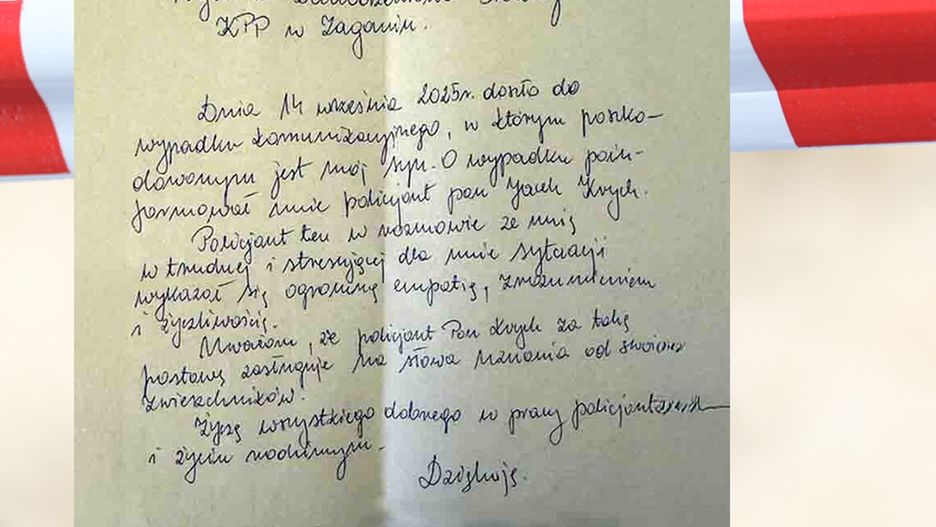 KPP w Żaganiu.
Dnia 14 września 2025r. doszło do
wypadku komunikacyjnego, w którym poszko-
dowanym jest mój syn. O wypadku poin-
formował mnie policjant pan Jacek Krych.
Policjant ten w rozmowie ze mną
w trudnej i stresującej dla mnie sytuacji
wykazał się ogromną empatią, zrozumieniem
i życzliwością.
Uważam, że policjant Pan Krych za taką
postawę zasługuje na słowa uznania od swoich
zwierzchników.
Życzę wszystkiego dobrego w pracy
i życiu rodzinnym.
Dziękuję.